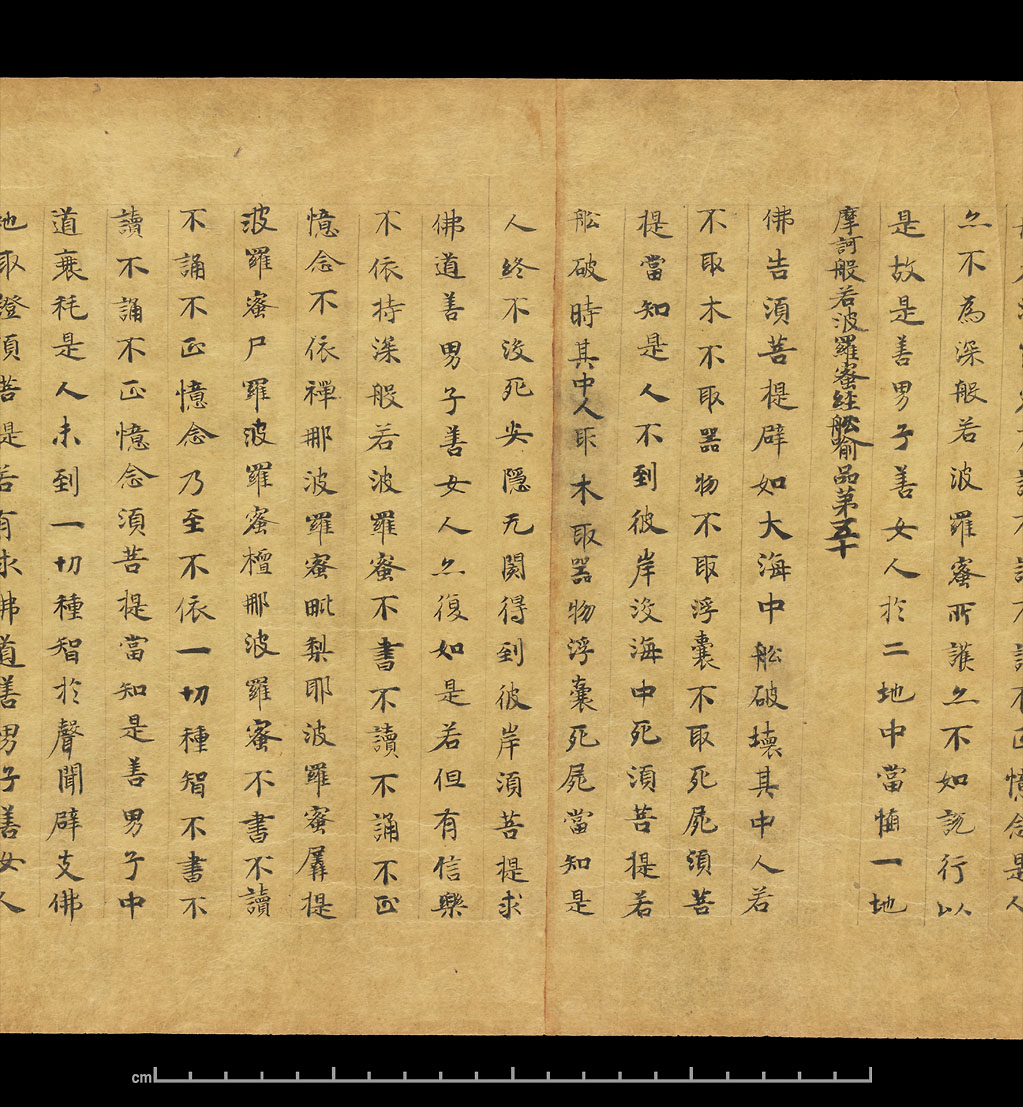 不正憶念是人
亦不為深般若波羅蜜所護亦不如說行以
是故是善男子善女人於二地中當墮一地
摩訶般若波羅蜜経舩喻品第五十
佛告須菩提辟如大海中舩破壞其中人若
不取木不取器物不取浮囊不取死屍須菩
提當知是人不到彼岸沒海中死須菩提若
舩破時其中人取木取器物浮囊死屍當知是
人終不沒死安隱无閡得到彼岸須菩提求
佛道善男子善女人亦復如是若但有信樂
不依持深般若波羅蜜不書不讀不誦不正
憶念不依禪那波羅蜜毗梨耶波羅蜜羼提
波羅蜜尸羅波羅蜜檀那波羅蜜不書不讀
不誦不正憶念乃至不依一切種智不書不
讀不誦不正憶念須菩提當知是善男子中
道衰耗是人未到一切種智於聲聞辟支佛
地取證須菩提若有求佛道善男子善女人
cm